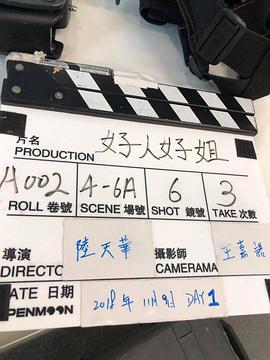 片名
PRODUCTION 好人好姐
A002 4-6A 6 3
ROLL 卷號 SCENE 場號 SHOT 鏡號 TAKE 次數
導演 陸天華 攝影師 王嘉
DIRECTO CAMERAMA
DATE 日期 2018年11月9日 DAY 1
PENMOON